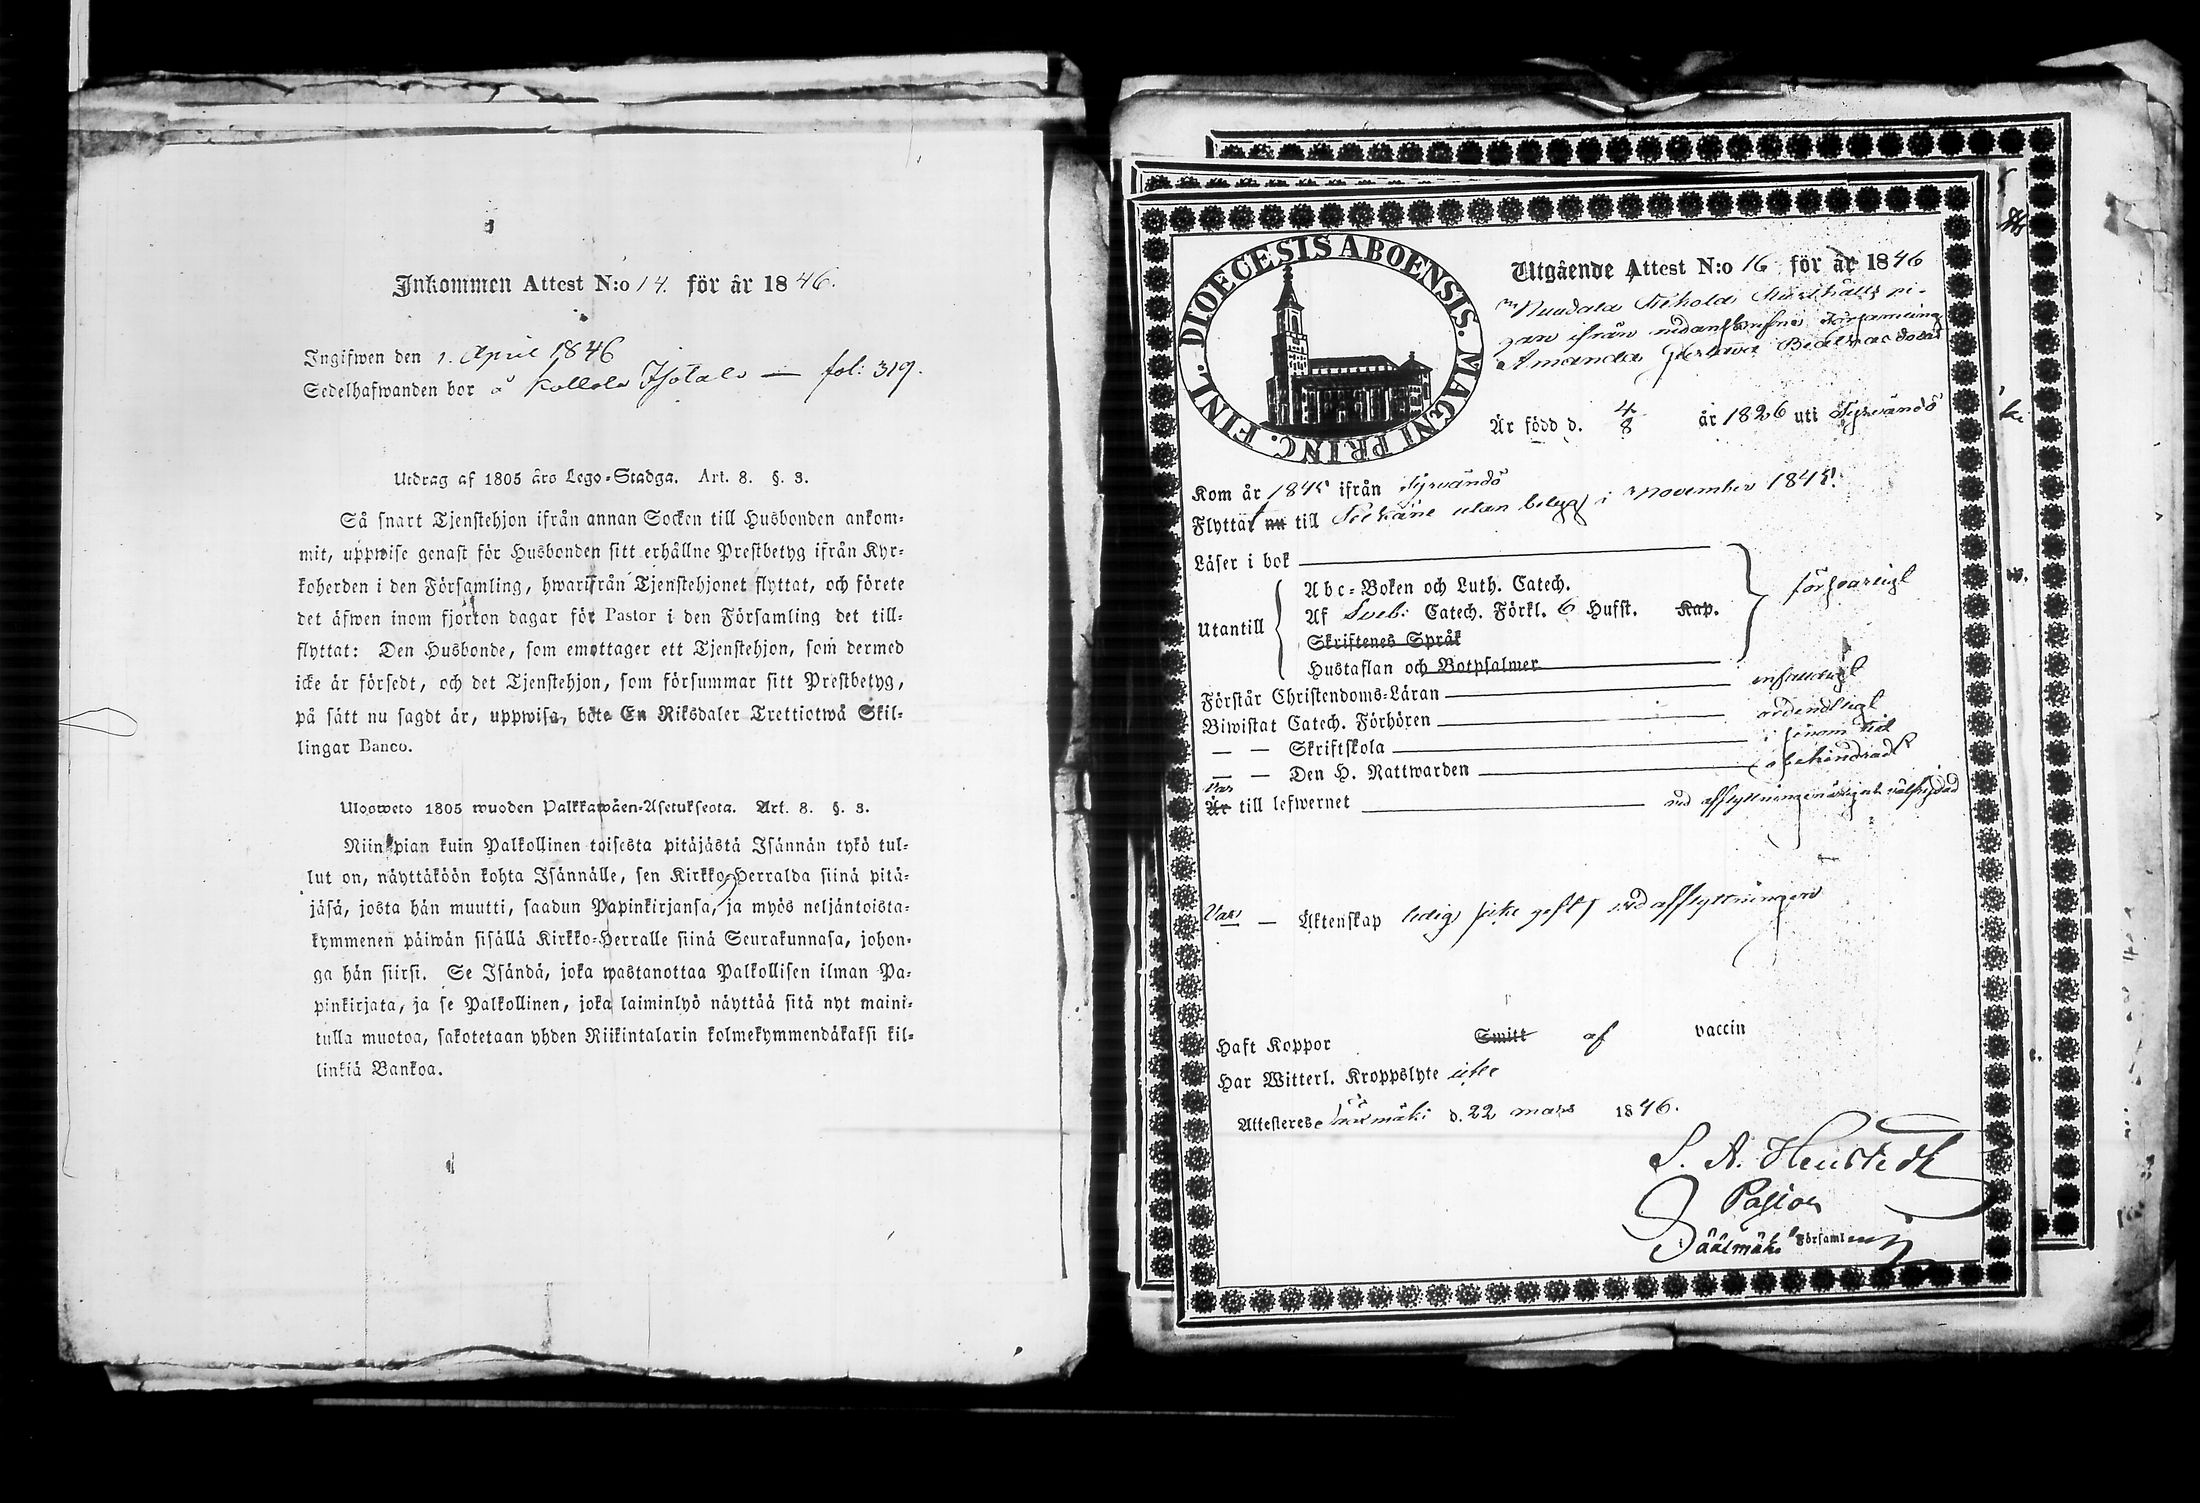 Inkommen Attest N:o 14. för år 1846.
Ingifwen den 1. April 1846
Sedelhafwanden bor å Kollola Isotalo — fol: 319.
Utdrag af 1805 års Lego-Stadga. Art. 8. §. 3.
Så snart Tjenstehjon ifrån annan Socken till Husbonden ankom-
mit, uppwise genast för Husbonden sitt erhållne Prestbetyg ifrån Kyr-
koherden i den Församling, hwarifrån Tjenstehjonet flyttat, och förete
det äfwen inom fjorton dagar för Pastor i den Församling det till-
flyttat: Den Husbonde, som emottager ett Tjenstehjon, som dermed
icke är försedt, och det Tjenstehjon, som försummar sitt Prestbetyg,
på sätt nu sagdt är, uppwisa, böte En Riksdaler Trettiotwå Skil-
lingar Banco.
Ulosweto 1805 wuoden Palkkawäen-Asetuksesta. Art. 8. §. 3.
Niin pian kuin Palkollinen toisesta pitäjästä Isännän tykö tul-
lut on, näyttäköön kohta Isännälle, sen Kirkko-Herralda siinä pitä-
jäsä, josta hän muutti, saadun Papinkirjansa, ja myös neljäntoista-
kymmenen päiwän sisällä Kirkko-Herralle siinä Seurakunnasa, johon-
ga hän siirsi. Se Isändä, joka wastanottaa Palkollisen ilman Pa-
pinkirjata, ja se Palkollinen, joka laiminlyö näyttää sitä nyt maini-
tulla muotoa, sakotetaan yhden Riikintalarin kolmekymmendäkaksi kil-
linkiä Bankoa.
DIOECESIS ABOENSIS. MAGNI PRINC. FINL.
Utgående Attest N:o 16 för år 1846
pi-
gan ifrån nedanskrifne Församling
Amanda Gustava
Är född d. 4/8 år 1826 uti Tyrvändö
Kom år 1845 ifrån Tyrvändö
Flyttat nu till utan betyg i November 1845.
Läser i bok
Utantill
Abc-Boken och Luth. Catech.
Af Sveb: Catech. Förkl. 6 Hufst. Kap.
försvarligt
Skriftenes Språk
Hustaflan och Botpsalmer
Förstår Christendoms-Läran enfaldigt
Biwistat Catech. Förhören ordentligt
— — Skriftskola i sinom tid
— — Den H. Nattwarden obehindradt
Var
Är till lefwernet vid afflyttningen
Var — Äktenskap ledig icke gift vid afflyttningen
Haft Koppor Smitt af vaccin
Har Witterl. Kroppslyte icke
Attesteres Säärmäki d. 22 mars 1846.
Pastor
i Säärmäki Församling